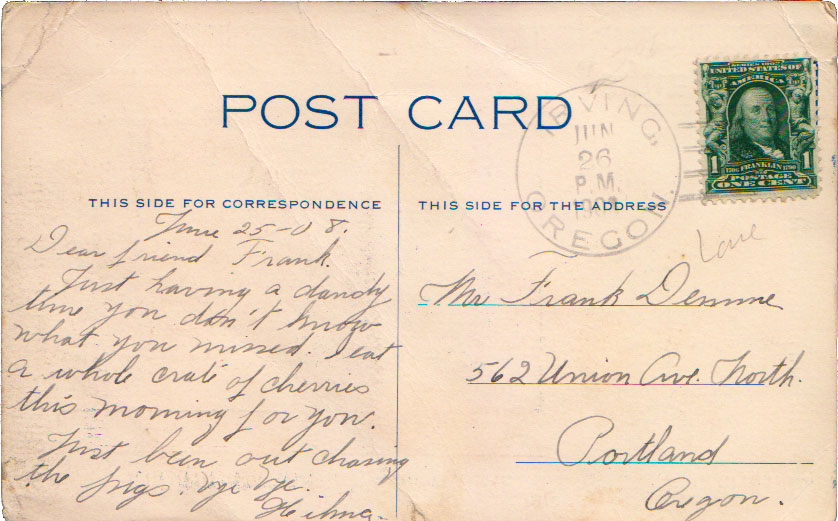 POST CARD
THIS SIDE FOR CORRESPONDENCE
June 25-08.
Dear friend Frank.
Just having a dandy
time you don't know
what you missed. I eat
a whole crate of cherries
this morning for you.
Just been out chasing
the pigs. bye bye.
Hilma.
IRVING,
JUN
26
P.M.
OREGON.
SERIES 1902
UNITED STATES OF
AMERICA
1 1
FRANKLIN
POSTAGE
ONE CENT
THIS SIDE FOR THE ADDRESS
Mr Frank
562 Union Ave. North.
Portland
Oregon.